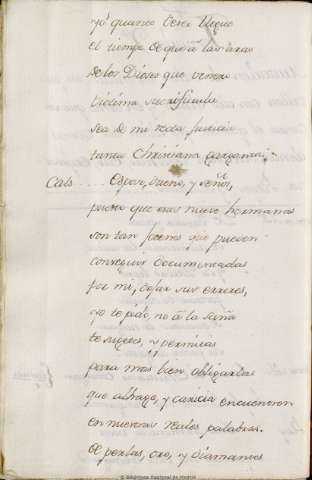 yo quando llegue
el tiempo de que â las aras
de los Dioses que venero
victima sacrificada
sea de mi recta justicia
tanta Christiana garganta.
Cats.... Esposo, dueño, y señor,
puesto que mis nueve hermanas
son tan que pueden
conseguir documentadas
por mi, dejar sus errores,
yo te pido, no â la saña
te sugetes, y permitas
para mas bien obligarlas
que alhago, y caricia encuentren
en nuestras reales palabras.
De perlas, oro, y diamantes
© Biblioteca Nacional de España